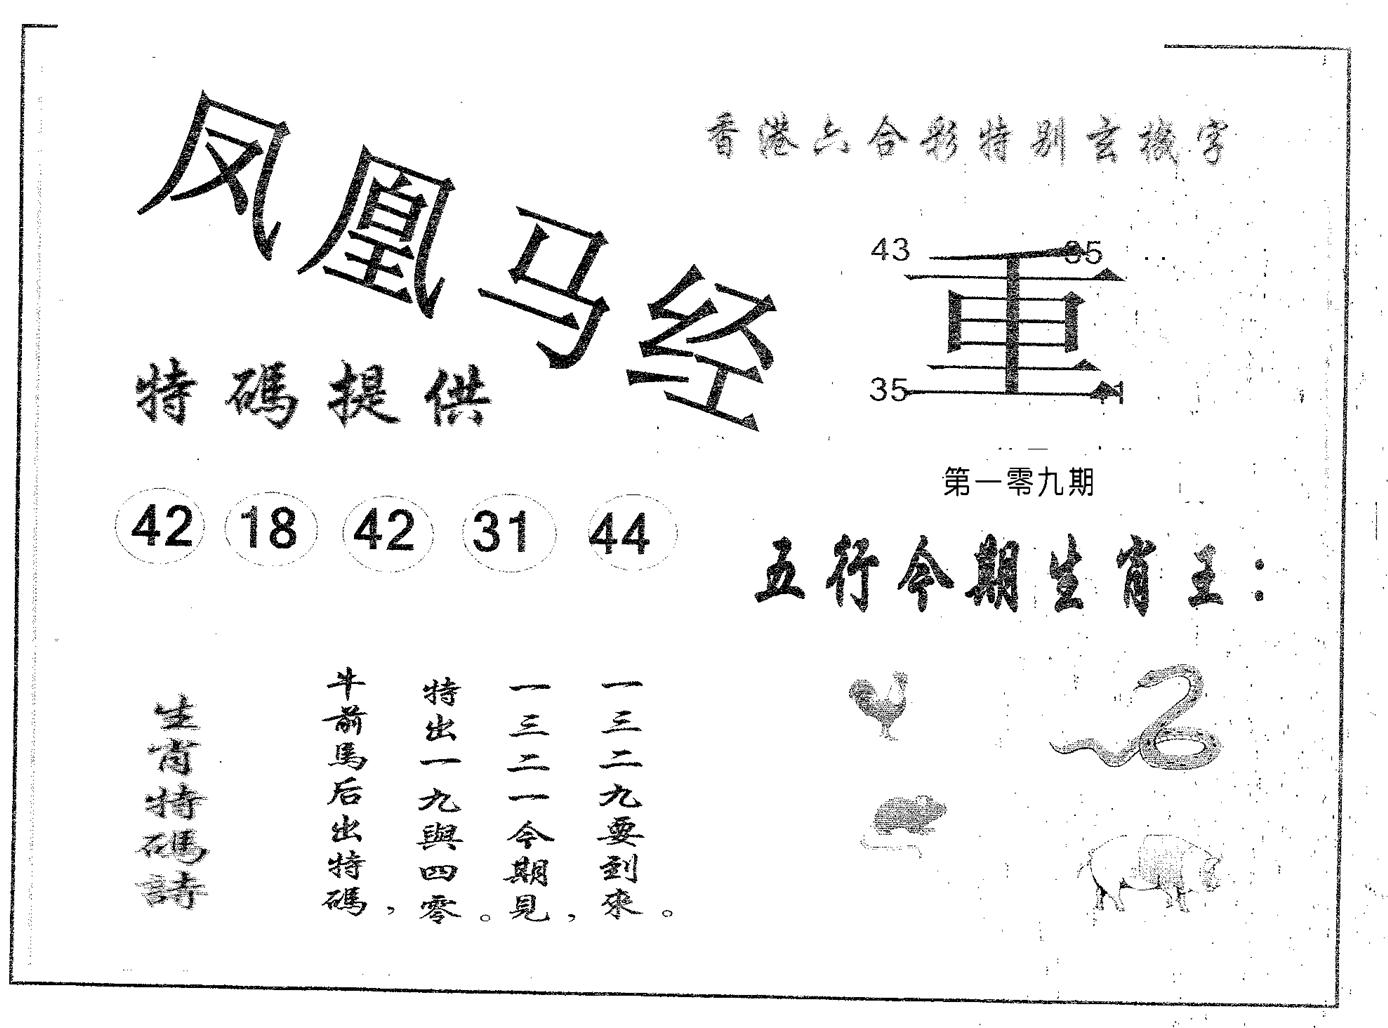 凤凰马经
香港六合彩特别玄機字
43
35
重
35
特碼提供
第一零九期
42 18 42 31 44
五行今期生肖王：
生肖特碼詩
牛前馬后出特碼，
特出一九與四零。
一三二一今期見，
一三二九要到來。